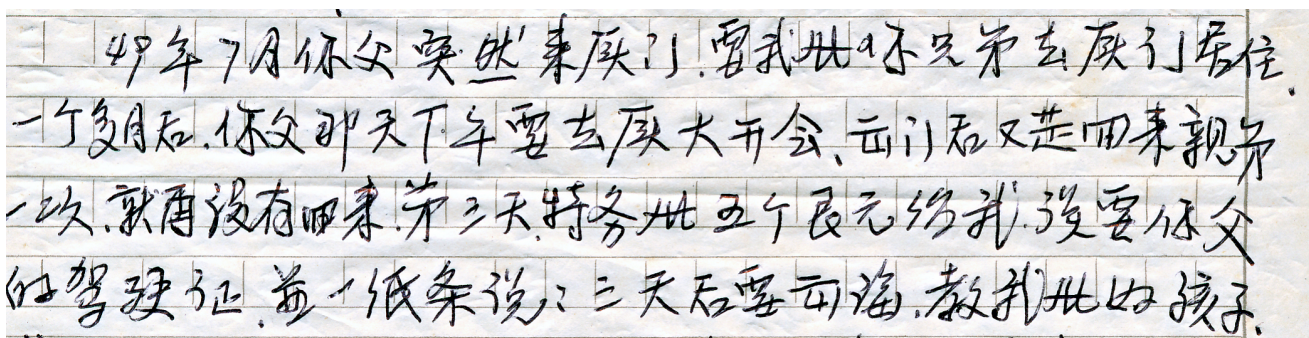 49年7月你父突然来厦门.要我带你兄弟去厦门居住.
一个多月后.你父那天下午要去厦大开会.出门后又走回来亲弟
一次.就再没有回来.第三天.特务带五个良元给我.说要你父
的驾驶证.并一纸条说:三天后要出海.教我带好孩子.